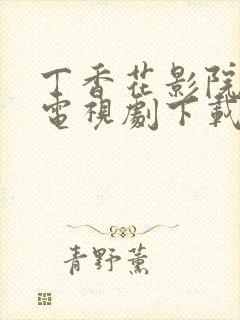 丁香花影院
電視劇下載
青野薰